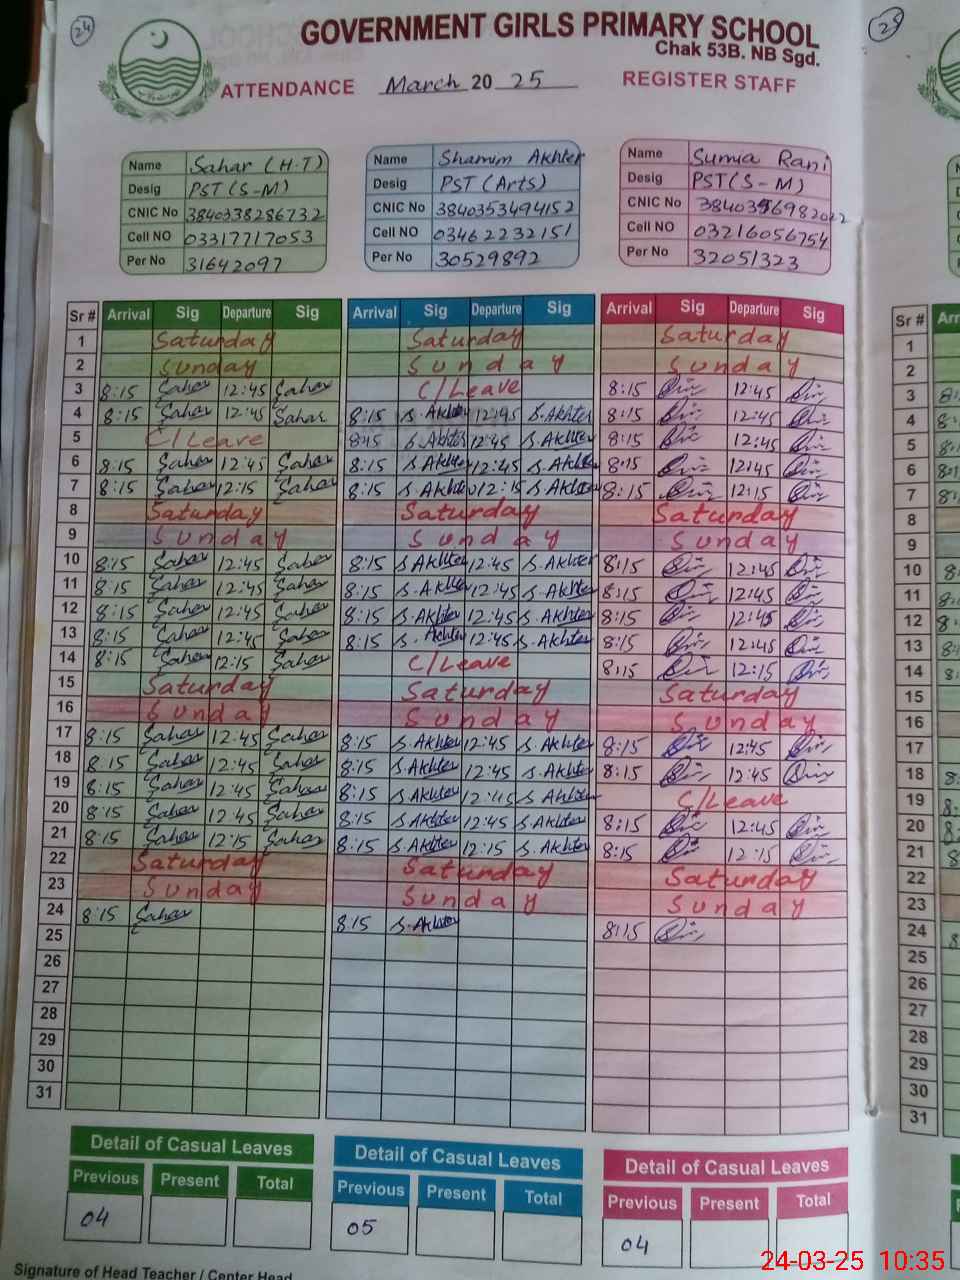 24
25
GOVERNMENT GIRLS PRIMARY SCHOOL
Chak 53B. NB Sgd.
ATTENDANCE March 2025 REGISTER STAFF
Name Sahar (H.T)
Desig PST(S-M)
CNIC No 3840338286732
Cell NO 03317717053
Per No 31642097
Name Shamim Akhter
Desig PST (Arts)
CNIC No 3840353494152
Cell NO 03462232151
Per No 30529892
Name Sumia Rani
Desig PST(S-M)
CNIC No
Cell NO 03216056754
Per No 32051323
Sr # Arrival Sig Departure Sig Arrival Sig Departure Sig Arrival Sig Departure Sig Sr #
1 Saturday Saturday Saturday 1
2 Sunday Sunday Sunday 2
3 8:15 Sahar 12:45 Sahar C/Leave 8:15 12:45 3
4 8:15 Sahar 12:45 Sahar 8:15 S.Akhter 12:45 S.Akhter 8:15 12:45 4
5 C/Leave 8:15 S.Akhter 12:45 S.Akhter 8:15 12:45 5
6 8:15 Sahar 12:45 Sahar 8:15 S.Akhter 12:45 S.Akhter 8:15 12:45 6
7 8:15 Sahar 12:15 Sahar 8:15 S.Akhter 12:15 S.Akhter 8:15 12:15 7
8 Saturday Saturday Saturday 8
9 Sunday Sunday Sunday 9
10 8:15 Sahar 12:45 Sahar 8:15 S.Akhter 12:45 S.Akhter 8:15 12:45 10
11 8:15 Sahar 12:45 Sahar 8:15 S.Akhter 12:45 S.Akhter 8:15 12:45 11
12 8:15 Sahar 12:45 Sahar 8:15 S.Akhter 12:45 S.Akhter 8:15 12:45 12
13 8:15 Sahar 12:45 Sahar 8:15 S.Akhter 12:45 S.Akhter 8:15 12:45 13
14 8:15 Sahar 12:15 Sahar C/Leave 8:15 12:15 14
15 Saturday Saturday Saturday 15
16 Sunday Sunday Sunday 16
17 8:15 Sahar 12:45 Sahar 8:15 S.Akhter 12:45 S.Akhter 8:15 12:45 17
18 8:15 Sahar 12:45 Sahar 8:15 S.Akhter 12:45 S.Akhter 8:15 12:45 18
19 8:15 Sahar 12:45 Sahar 8:15 S.Akhter 12:45 S.Akhter C/Leave 19
20 8:15 Sahar 12:45 Sahar 8:15 S.Akhter 12:45 S.Akhter 8:15 12:45 20
21 8:15 Sahar 12:15 Sahar 8:15 S.Akhter 12:15 S.Akhter 8:15 12:15 21
22 Saturday Saturday Saturday 22
23 Sunday Sunday Sunday 23
24 8:15 Sahar 8:15 S.Akhter 8:15 24
25 25
26 26
27 27
28 28
29 29
30 30
31 31
Detail of Casual Leaves Detail of Casual Leaves Detail of Casual Leaves
Previous Present Total Previous Present Total Previous Present Total
04 05 04
24-03-25 10:35
Signature of Head Teacher / Center Head